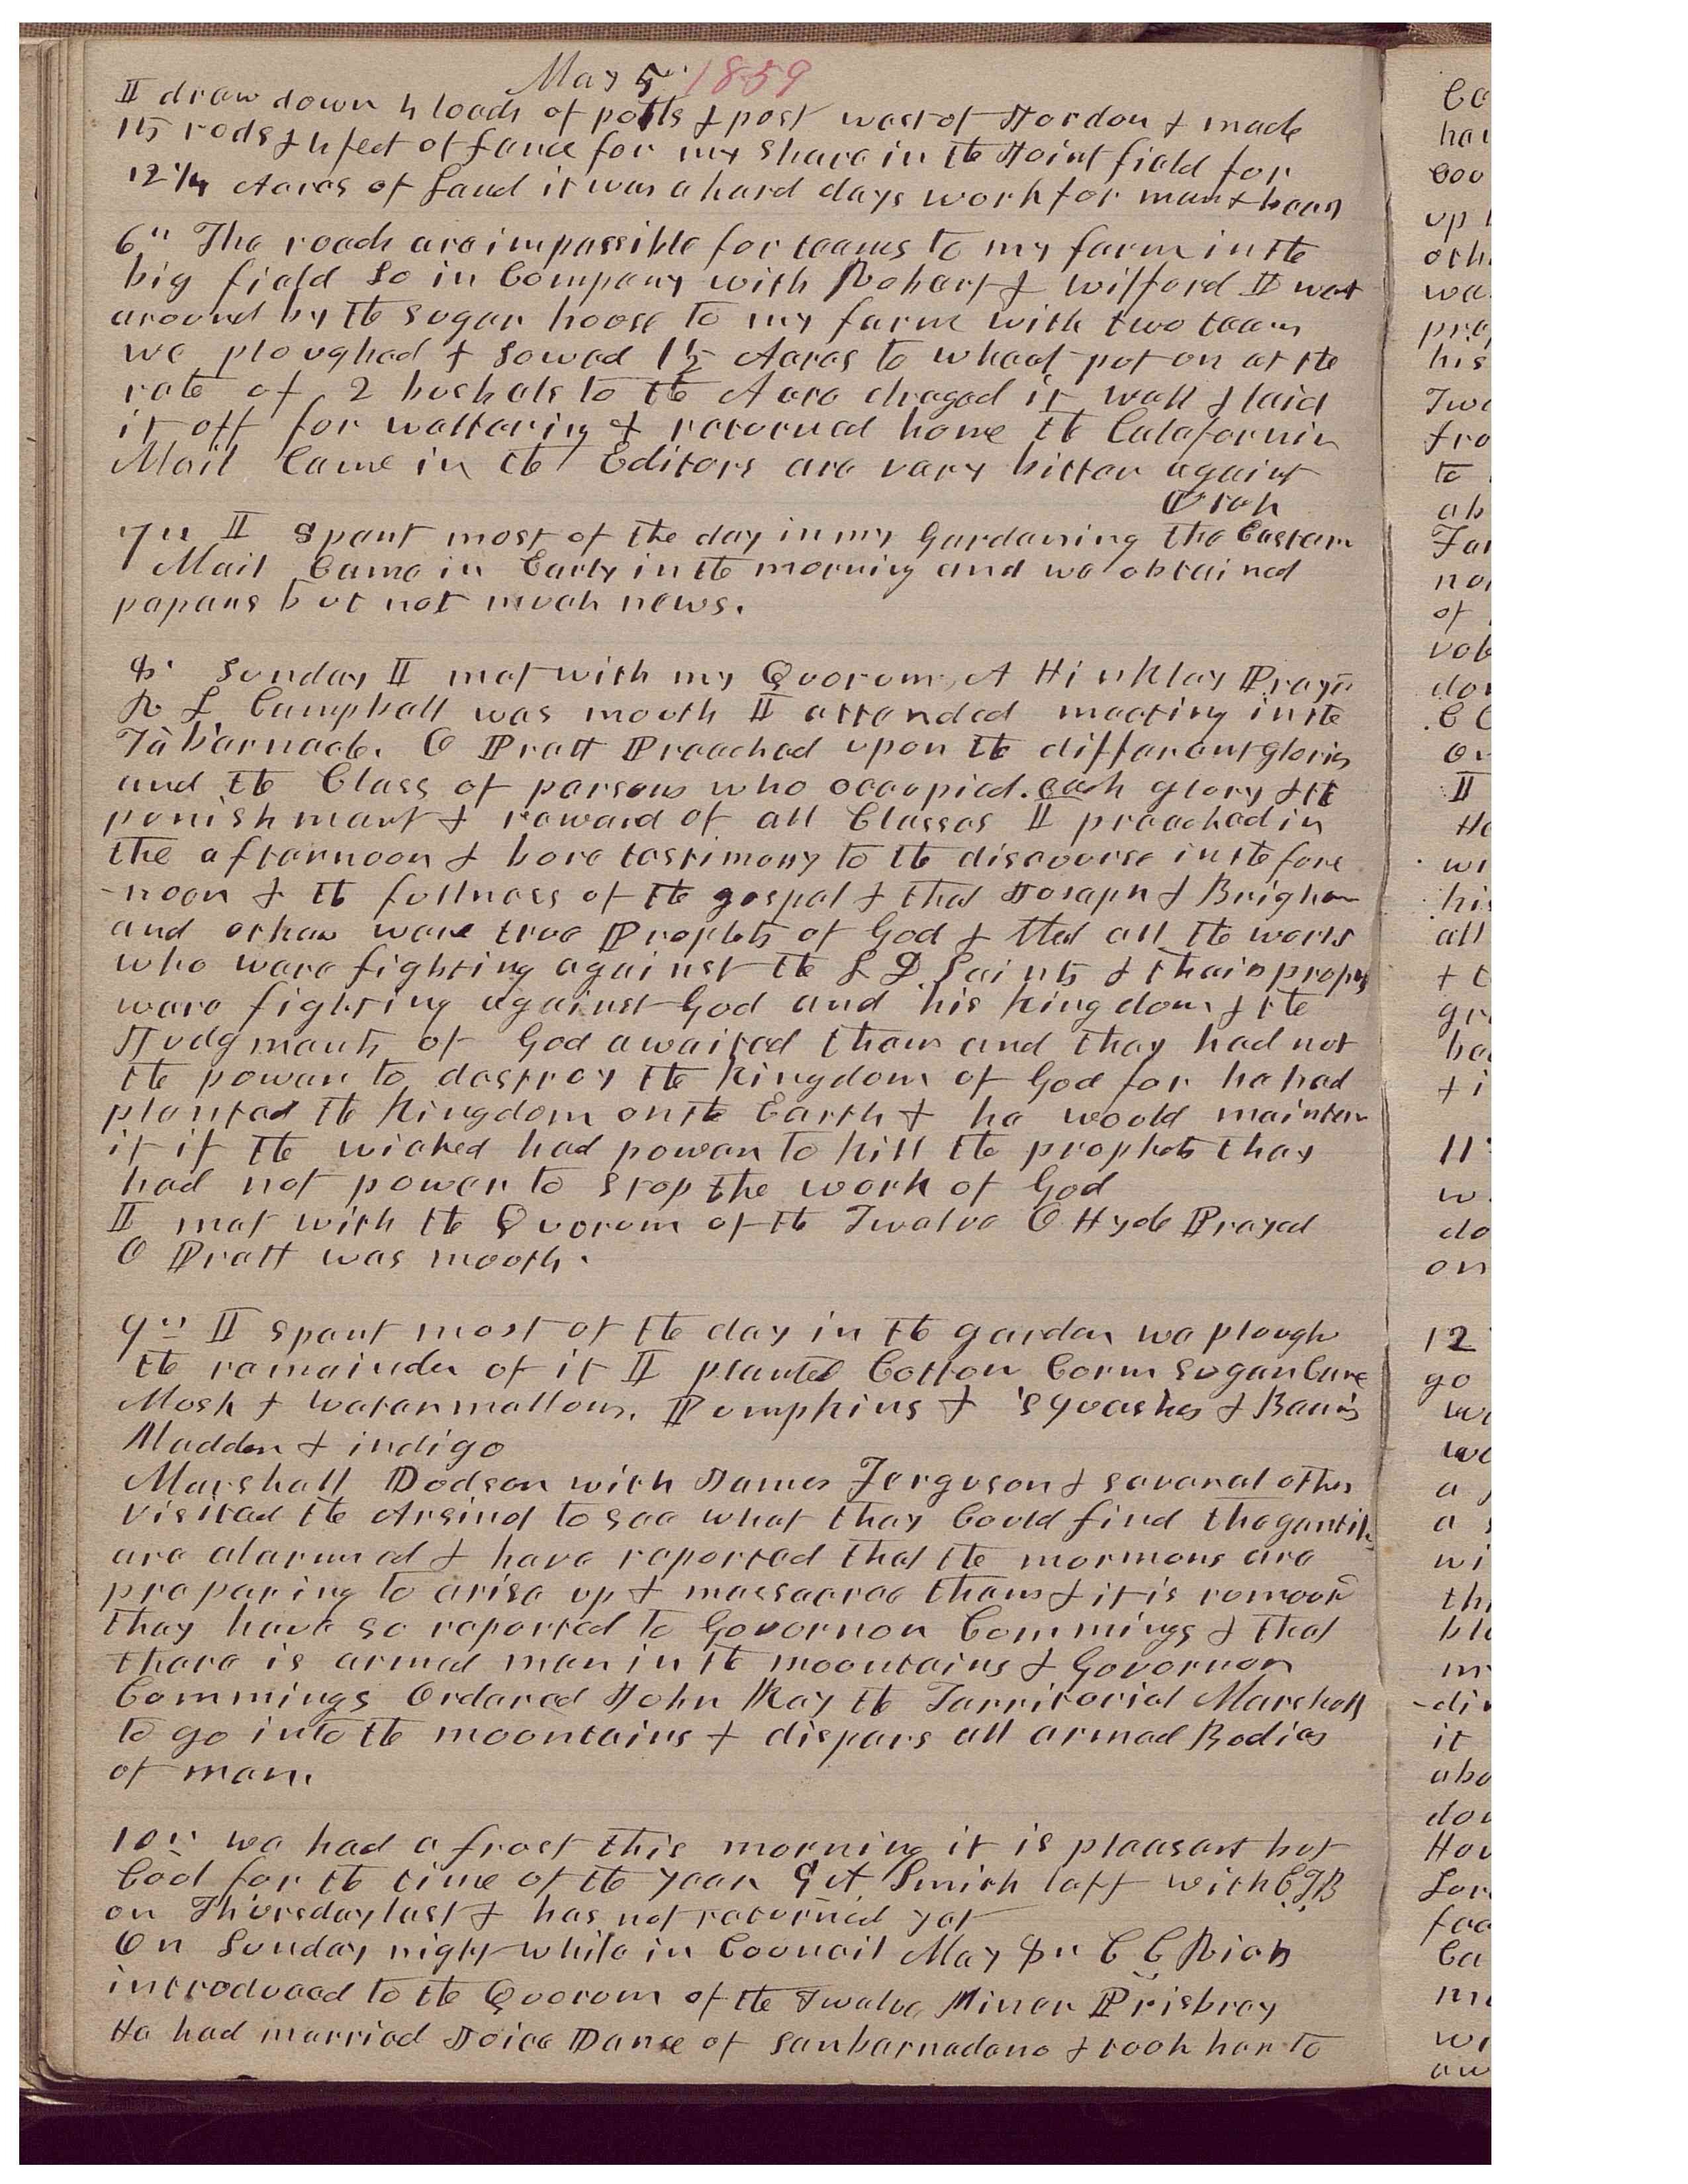 May 5" 1859
I drew down 4 loads of polls & post west of Jordon & made
15 rods & 4 feet of fence for my share in the Joint field for
12 1/4 Acres of Land it was a hard days work for man & beast
6" The roads are impassible for teams to my farm in the
big field So in Company with Robert & Wilford I went
around by the sugar house to my farm with two teams
we ploughed & Sowed 1 1/2 Acres to wheat put on at the
rate of 2 bushels to the Acre draged it well & laid
it off for wattering & returned home the Calafornia
Mail Came in the Editors are very bitter against
Utah
7" I Spent most of the day in my Gardening the Eastern
Mail Came in Early in the morning and we obtained
papers but not much news.
8" Sunday I met with my Quorum, A Hinkley Prayed
R L Campbell was mouth I attended meeting in the
Tabernacle. O Pratt Preached upon the different glories
and the Class of persons who occupied. each glory & the
punishment & reward of all Classes I preached in
the afternoon & bore testimony to the discourse in the fore
-noon & the fullness of the gospel & that Joseph & Brigham
and others were true Prophets of God & that all the world
who were fighting against the L D Saints & their prophets
were fighting against God and his Kingdom & the
Judgments of God awaited them and they had not
the power to destroy the Kingdom of God for he had
planted the Kingdom on the Earth & he would maintain
it if the wicked had power to kill the prophets they
had not power to stop the work of God
I met with the Quorum of the Twelve O Hyde Prayed
O Pratt was mouth.
9" I spent most of the day in the garden we plough
the remainder of it I planted Cotton Corn Sugar Cane
Mosk & watermellons, Pumpkins & squashes & Beans
Madder & indigo
Marshall Dodson with James Ferguson & several others
visited the Arsinel to see what they Could find the gentiles
are alarmed & have reported that the mormons are
preparing to arise up & massacree them & it is rumord
they have so reported to Governor Cummings & that
there is armed men in the mountains & Governor
Cummings Ordered John Kay the Territorial Marshall
to go into the mountains & dispers all armed Bodies
of men.
10" we had a frost this morning it is pleasant but
Cod for the time of the year G A Smith left with C.J.B
on Thursday last & has not returned yet
On Sunday night while in Council May 8" C C Rich
introduced to the Quorum of the Twelve Miner Prisbrey
He had married Joice Dance of Sanbarnadeno & took her to